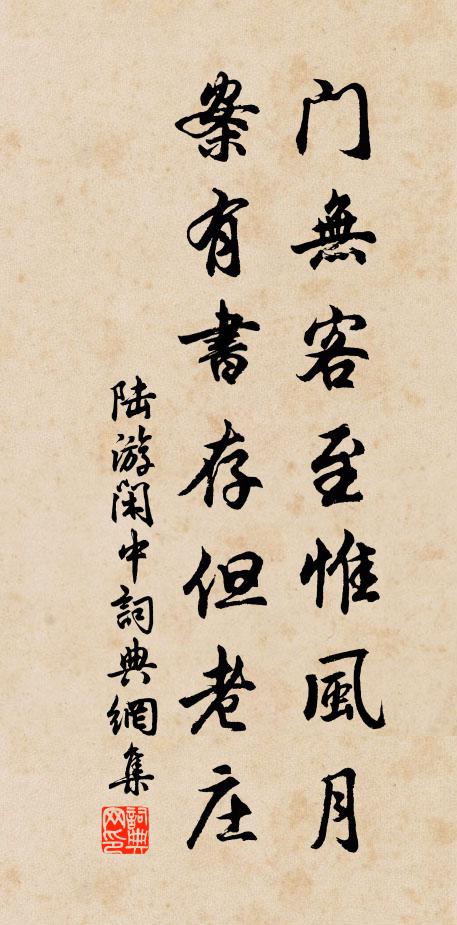 门無客至惟風月
案有書存但老庄
陆游闲中詞典網集
詞典網印